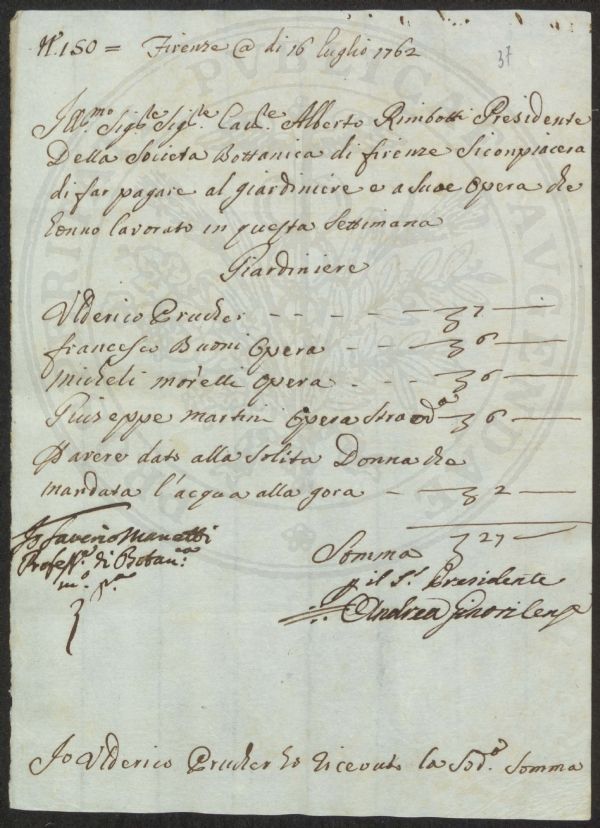 N.° 150 = Firenze @ di 16 luglio 1762
37
Ill.mo Sig.re Sig.re Cav.re Alberto Rimbotti Presidente
Della Società Bottanica di firenze Siconpiacera
di far pagare al giardiniere e a Sue Opera che
hanno lavorato in questa Settimana
Giardiniere
Ulderico Prucher - - - - - 7 —
francesco Buoni Opera - - - 6 —
Micheli morelli Opera - - - 6 —
Giuseppe martini Opera Straod.a 6 —
Davere dato alla Solita Donna che
mandata l'acqua alla gora - 2 —
Somma 27 —
Io Saverio Manetti
Profess.e di Botan.ca
m.o p.a
p il S.r Presidente
Andrea Ginori
Io Ulderico Prucher ho ricevuto la Sod.a Somma